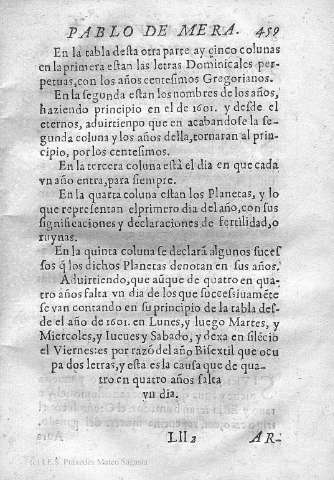 PABLO DE MERA. 459
En la tabla desta otra parte ay cinco colunas
en la primera estan las letras Dominicales per-
petuas, con los años centesimos Gregorianos.
En la segunda estan los nombres de los años,
haziendo principio en el de 1601. y desde el
eternos, aduirtienpo que en acabandose la se-
gunda coluna y los años della, tornaran al prin-
cipio, por los centesimos.
En la tercera coluna està el dia en que cada
vn año entra, para siempre.
En la quarta coluna estan los Planetas, y lo
que representan el primero dia del año, con sus
significaciones y declaraciones de fertilidad, o
ruynas.
En la quinta coluna se declarã algunos suces
sos q̃ los dichos Planetas denotan en sus años.
Aduirtiendo, que aũque de quatro en qua-
tro años falta vn dia de los que successiuamẽte
se van contando en su principio de la tabla des-
de el año de 1601. en Lunes, y luego Martes, y
Miercoles, y Iueues y Sabado, y dexa en silẽcio
el Viernes: es por razõ del año Bisextil que ocu
pa dos letras, y esta es la causa que de qua-
tro en quatro años falta
vn dia.
Lll 2 AR-
(c) I.E.S. Práxedes Mateo Sagasta